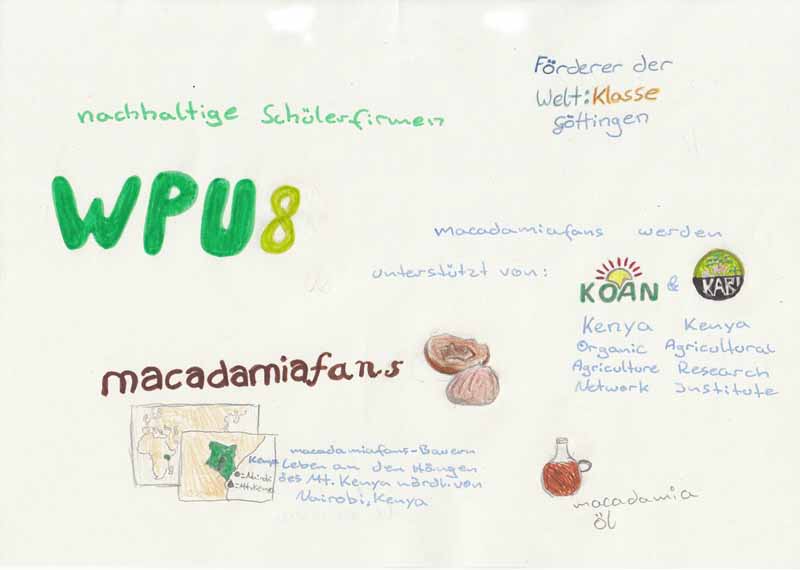 Förderer der
Welt:Klasse
Göttingen
nachhaltige Schülerfirmen
WPU8
macadamiafans werden
unterstützt von:
KOAN & KARI
Kenya Kenya
Organic Agricultural
Agriculture Research
Network Institute
macadamiafans
macadamiafans-Bauern
Leben an den Hängen
des Mt. Kenya nördl. von
Nairobi, Kenya
Kenya
=Nairobi
=Mt.Kenya
macadamia
öl